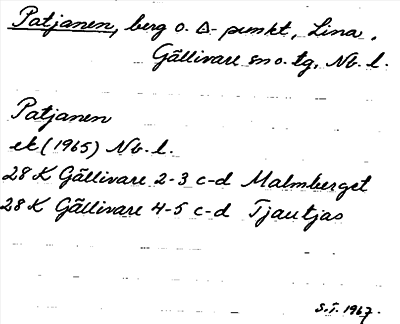 Patjanen, berg o. ∆-punkt, Lina,
Gällivare sn o. tg, Nb. l.
Patjanen
ek (1965) Nb. l.
28 K Gällivare 2-3 c-d Malmberget
28 K Gällivare 4-5 c-d Tjautjas
S.I. 1967.